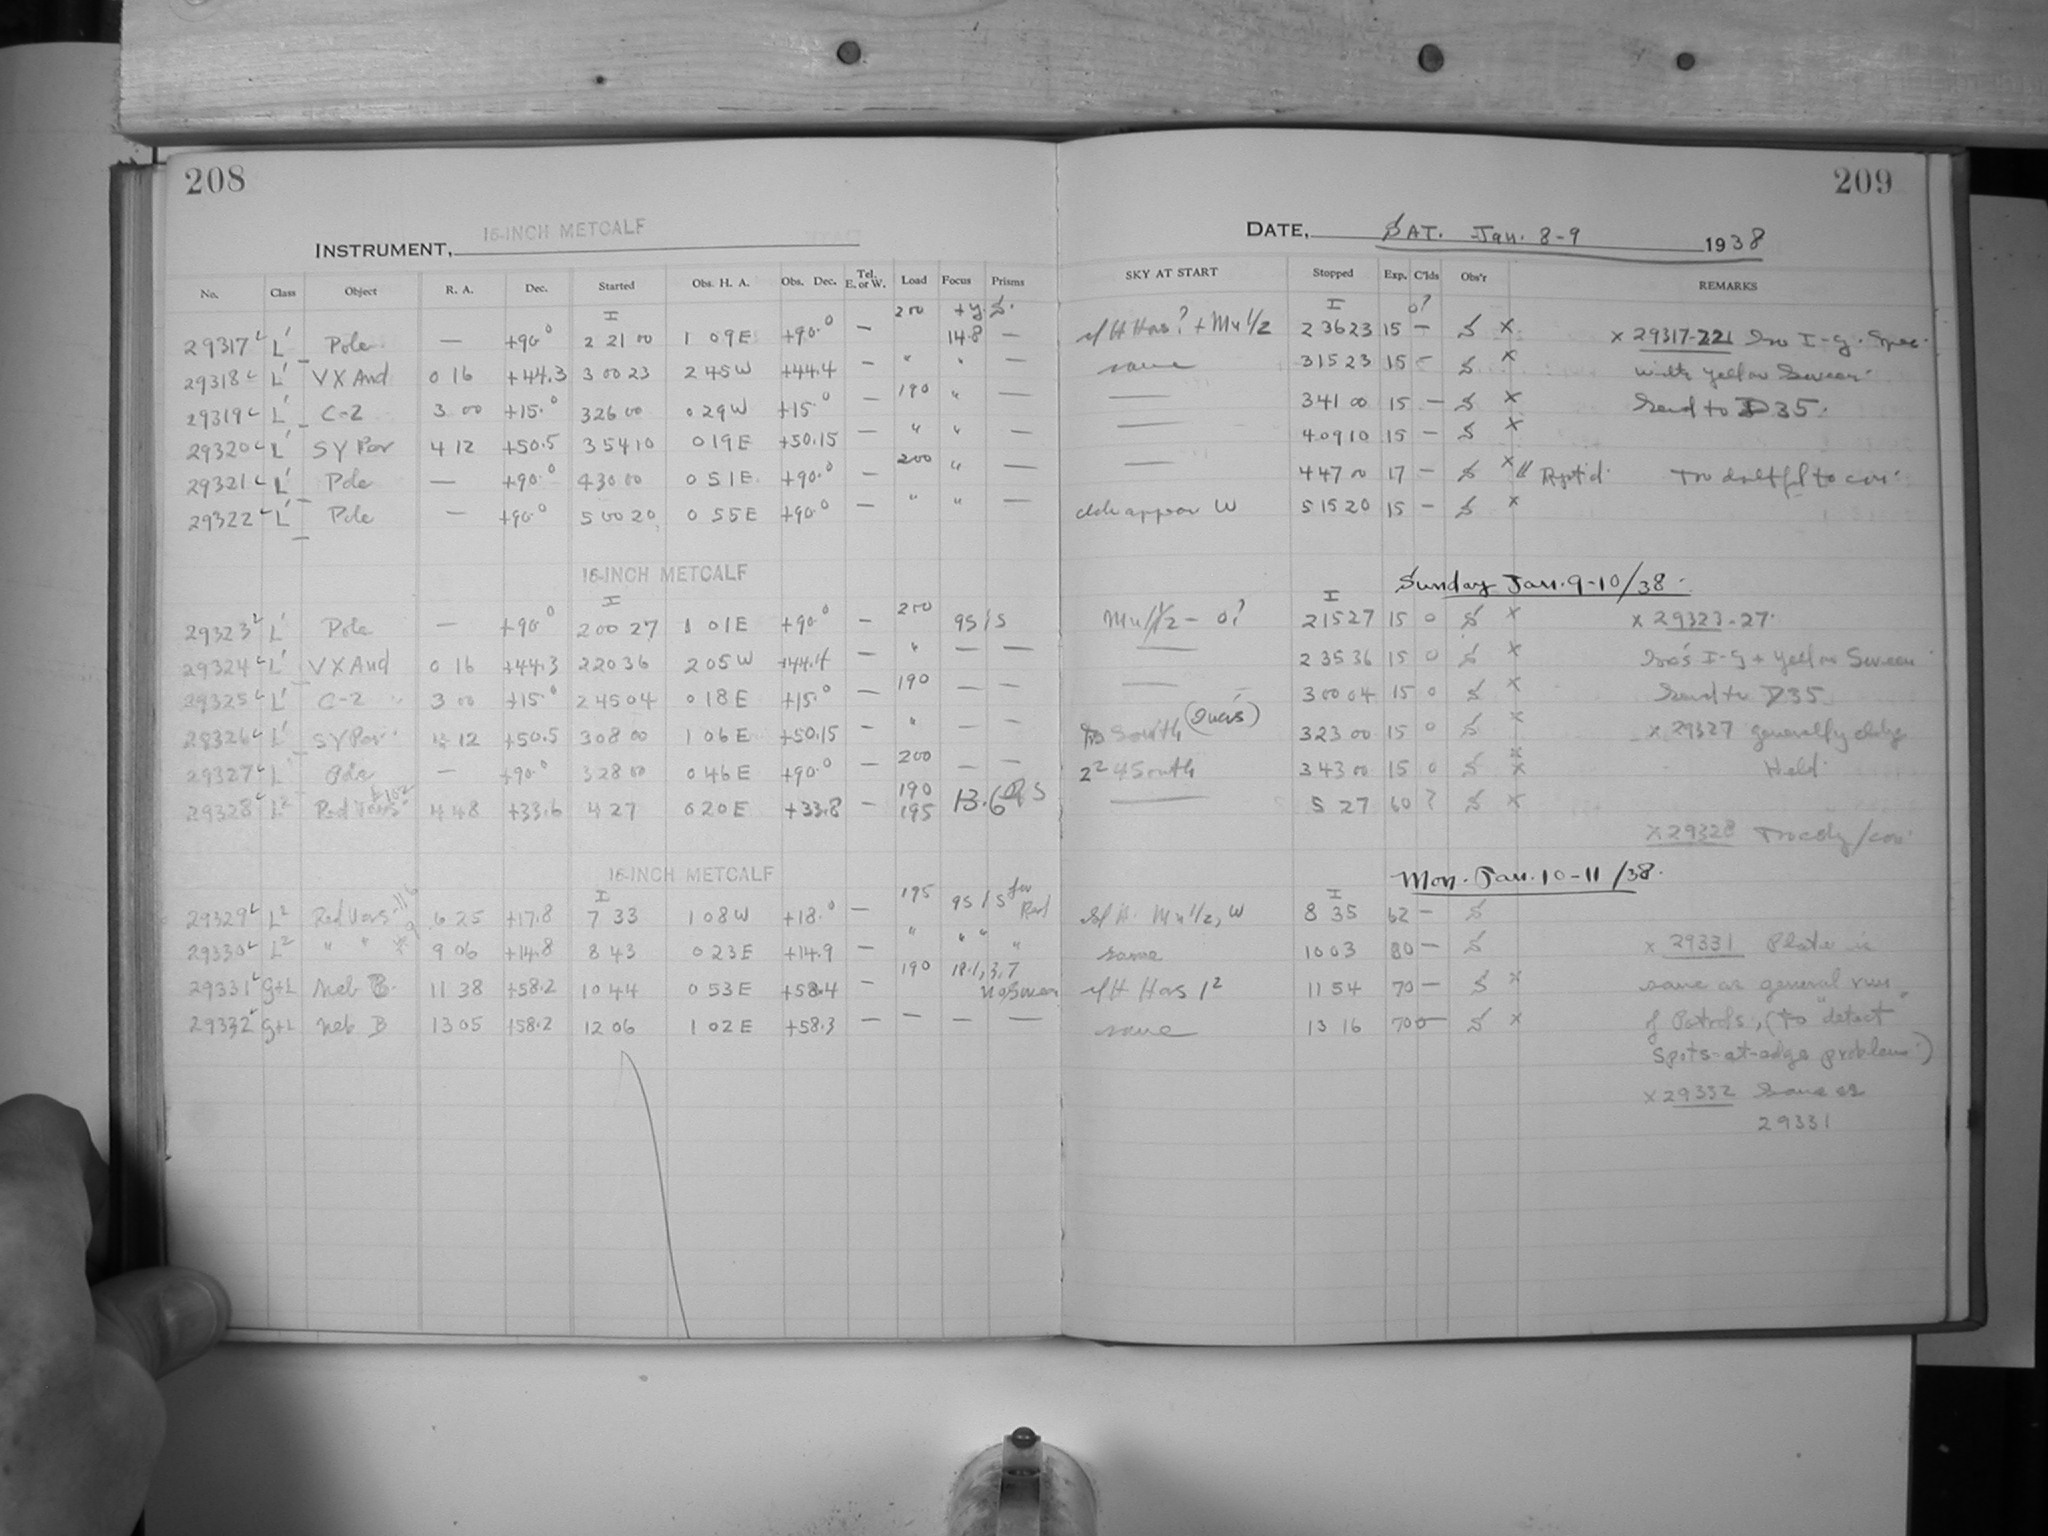 208
INSTRUMENT, 16-INCH METCALF
No. Class Object R. A. Dec. Started Obs. H. A. Obs. Dec. Tel. E. or W. Load Focus Prisms
29317 L' Pole — +90.0 2 21 00 1 09 E +90.0 — 200 14.8 —
29318 L' VX And 0 16 +44.3 3 00 23 2 45 W +44.4 — " " —
29319 L' C-2 3 00 +15.0 3 26 00 0 29 W +15.0 — 190 " —
29320 L' SY Per 4 12 +50.5 3 54 10 0 19 E +50.15 — " " —
29321 L' Pole — +90.0 4 30 00 0 51 E +90.0 — 200 " —
29322 L' Pole — +90.0 5 00 20 0 55 E +90.0 — " " —
16-INCH METCALF
29323 L' Pole — +90.0 2 00 27 1 01 E +90.0 — 200 95 / S
29324 L' VX And 0 16 +44.3 2 20 36 2 05 W +44.4 — " — —
29325 L' C-2 3 00 +15.0 2 45 04 0 18 E +15.0 — 190 — —
29326 L' SY Per 4 12 +50.5 3 08 00 1 06 E +50.15 — " — —
29327 L' Pole — +90.0 3 28 00 0 46 E +90.0 — 200 — —
29328 L2 Red Vars 102 4 48 +33.6 4 27 0 20 E +33.8 — 190 195 13.6 S
16-INCH METCALF
29329 L2 Red Vars 116 6 25 +17.8 7 33 1 08 W +18.0 — 195 95 / S for Red
29330 L2 " " 9 06 +14.8 8 43 0 23 E +14.9 — " " " "
29331 g+L Neb B. 11 38 +58.2 10 44 0 53 E +58.4 — 190 18.1, 3.7 no Screen
29332 g+L Neb B 13 05 +58.2 12 06 1 02 E +58.3 — — — —
209
DATE, SAT. Jan. 8-9 1938
SKY AT START Stopped Exp. C'lds Obs'r REMARKS
s/H Has? + Mu 1/2 2 36 23 15 — S x x 29317-221 Iso I-g. Spec.
same 3 15 23 15 — S x with yellow Screen.
— 3 41 00 15 — S x Send to D35.
— 4 09 10 15 — S x
— 4 47 00 17 — S x // Rptd. Too doubtful to con.
clds appear W 5 15 20 15 — S x
Sunday Jan. 9-10/38.
Mu 1/2 - 0? 2 15 27 15 0 S x x 29323-27.
— 2 35 36 15 0 S x Iso's I-g + yellow Screen
— 3 00 04 15 0 S x Send to D35
South 3 23 00 15 0 S x x 29327 generally cldy
South 3 43 00 15 0 S x Held.
— 5 27 60 ? S x
x 29328 Too cldy/con.
Mon. Jan. 10-11/38.
s/H. Mu 1/2, W 8 35 62 — S
same 10 03 80 — S x 29331 Plate is
s/H Has 12 11 54 70 — S x same as general run
same 13 16 70 0 — S x of Patrols, (to "detect
spots-at-edge problem".)
x 29332 Same as
29331